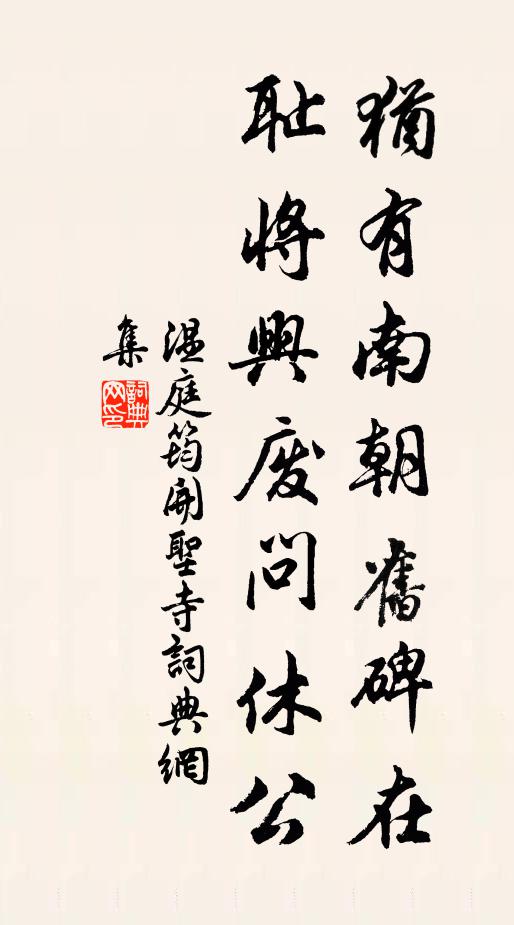 猶有南朝舊碑在
耻將興廢問休公
温庭筠開聖寺詞典網
集
詞典網印